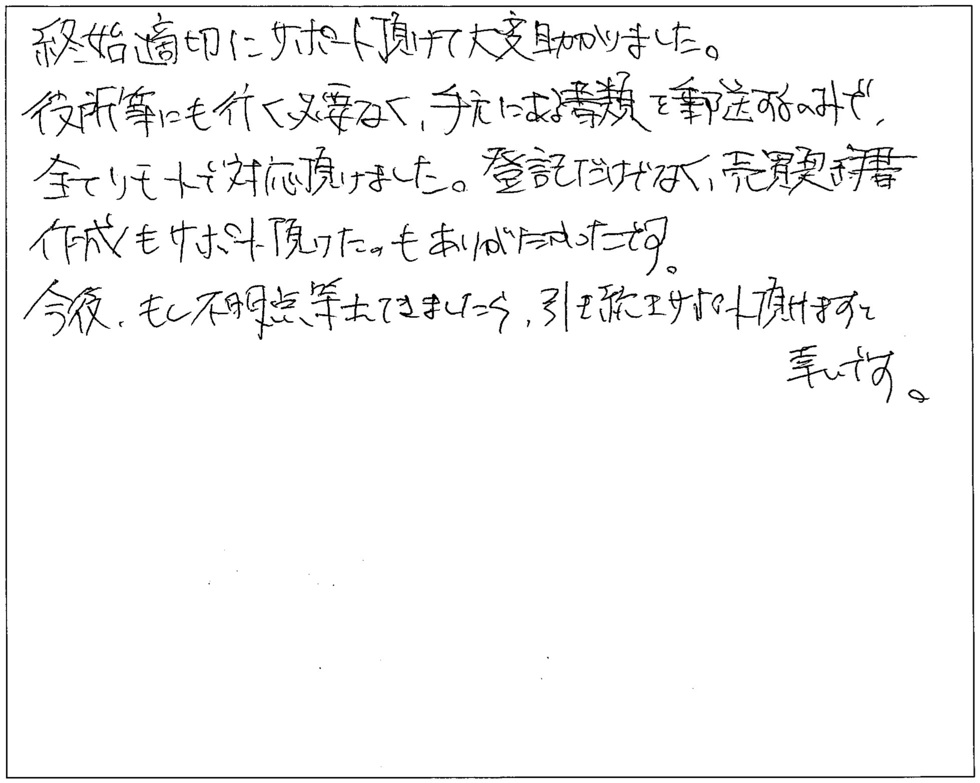 終始適切にサポート頂けて大変助かりました。
役所等にも行く必要なく、手元にある書類を郵送するのみで、
全てリモートで対応頂けました。登記だけでなく、売買契約書
作成もサポート頂けたのもありがたかったです。
今後、もし不明点等出てきましたら、引き続きサポート頂けますと
幸いです。